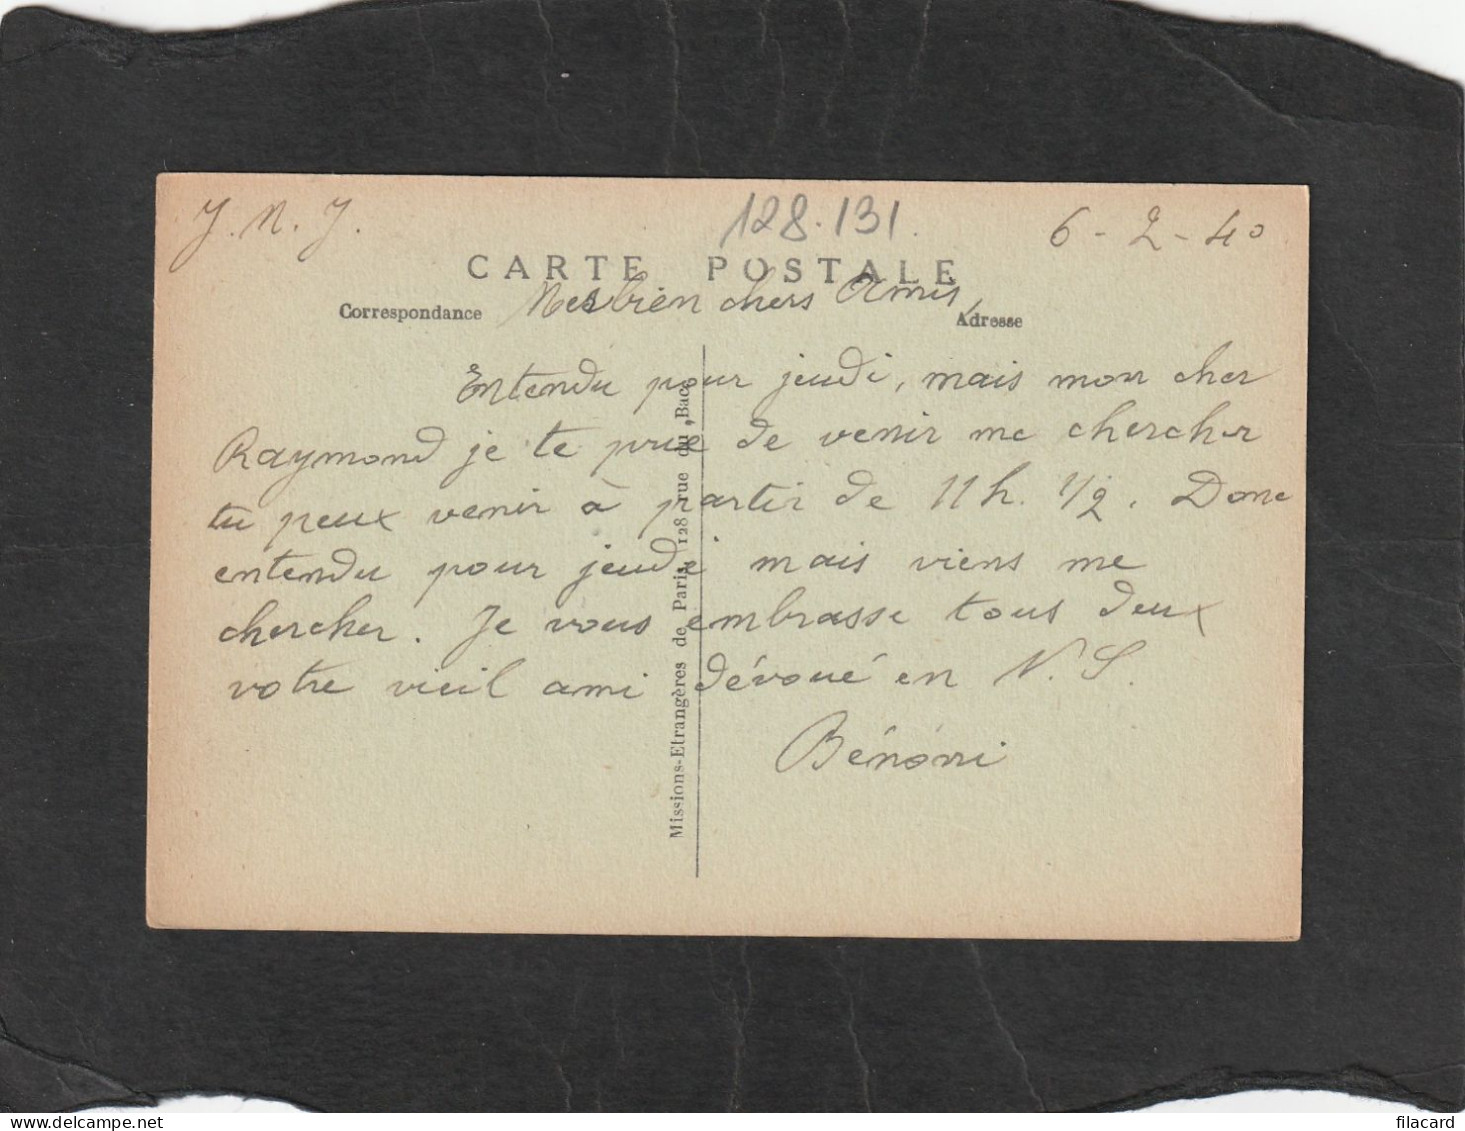 J. N. J.
128.131.
6-2-40
CARTE POSTALE
Correspondance
Mes bien chers Amis,
Adresse
Entendu pour jeudi, mais mon cher
Raymond je te prie de venir me chercher
tu peux venir à partir de 11h. 1/2. Donc
entendu pour jeudi mais viens me
chercher. Je vous embrasse tous deux
votre vieil ami dévoué en N. S.
Bénoni
Missions-Etrangères de Paris, 128 rue du Bac.
filacard